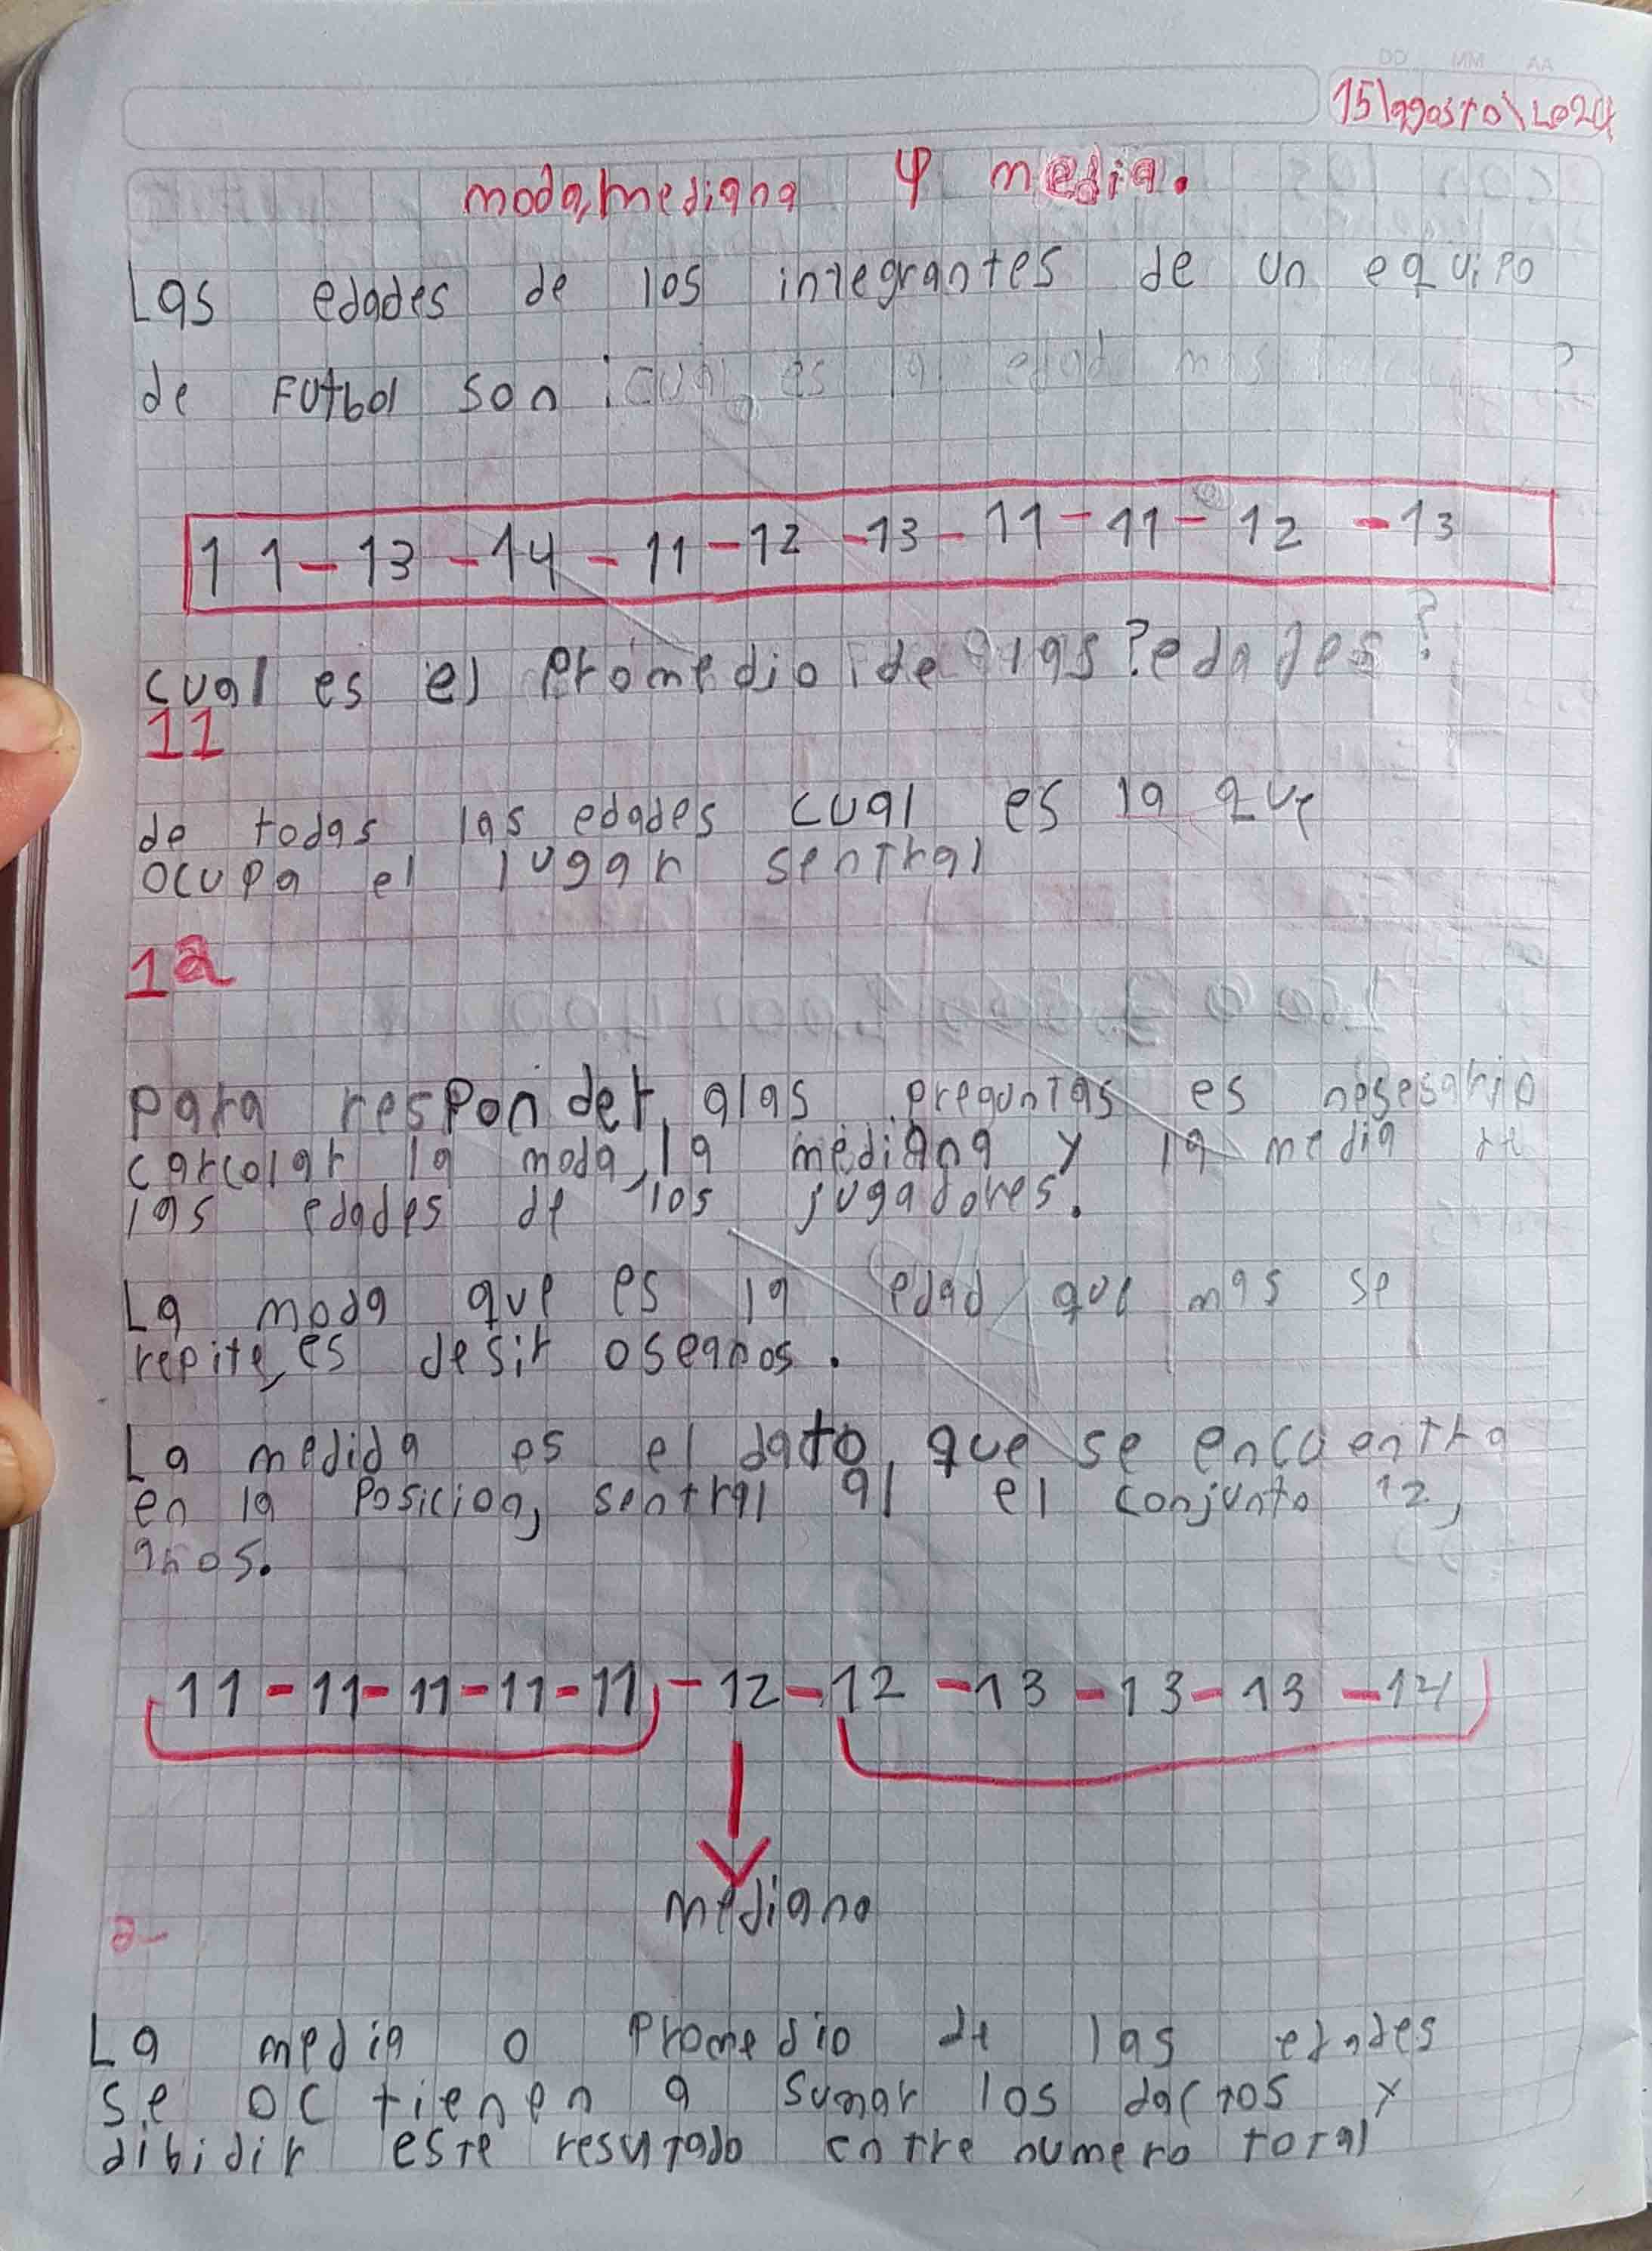 DD MM AA
15\agosto\2024
moda, mediana y media.
Las edades de los integrantes de un equipo
de Futbol son:
11-13-14-11-12-13-11-11-12-13
cual es el promedio de las ? edades?
11
de todas las edades cual es la que
ocupa el lugar sentral
12
para responder, alas preguntas es nesesario
carcolar la moda, la mediana y la media de
las edades de los jugadores.
La moda que es la edad que mas se
repite, es desir oseanos.
La medida es el dato, que se encuentra
en la posicion, sentral al el conjunto 12,
anos.
11-11-11-11-11-12-12-13-13-13-14
mediana
2-
La media o Promedio de las edades
se oc tienen a sumar los dactos y
dibidir este resultado entre numero total